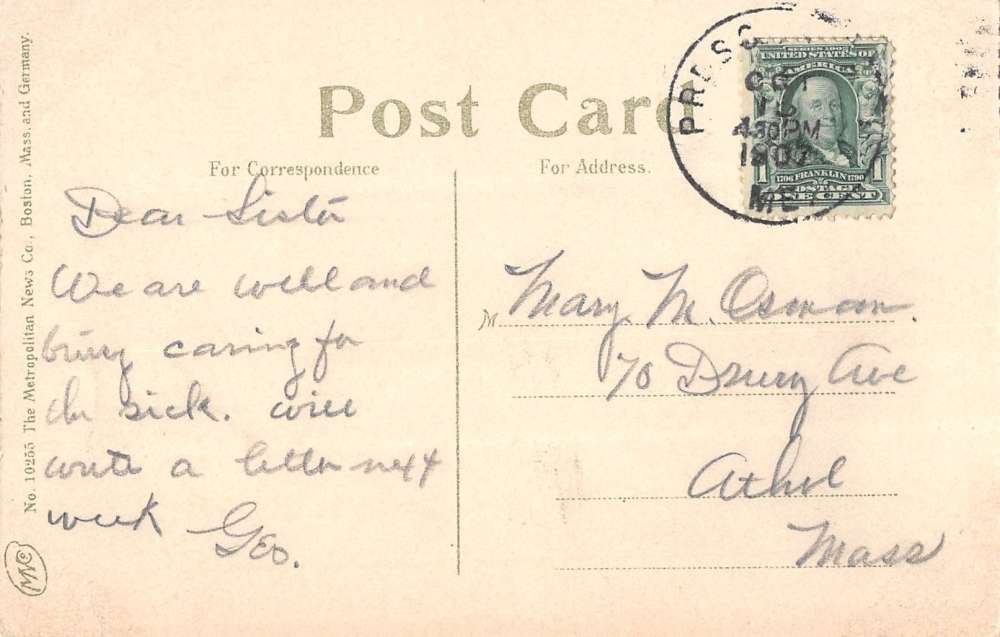 Post Card
For Correspondence
For Address.
No. 10255 The Metropolitan News Co., Boston, Mass. and Germany.
MNC
OCT
4 30 PM
1907
ME
SERIES 1902
UNITED STATES OF
AMERICA
1706 FRANKLIN 1790
POSTAGE
1 ONE CENT 1
Dear Sister
We are well and
busy caring for
the sick. will
write a letter next
week
Geo.
M Mary M. Osmon.
70 Drury Ave
Athol
Mass